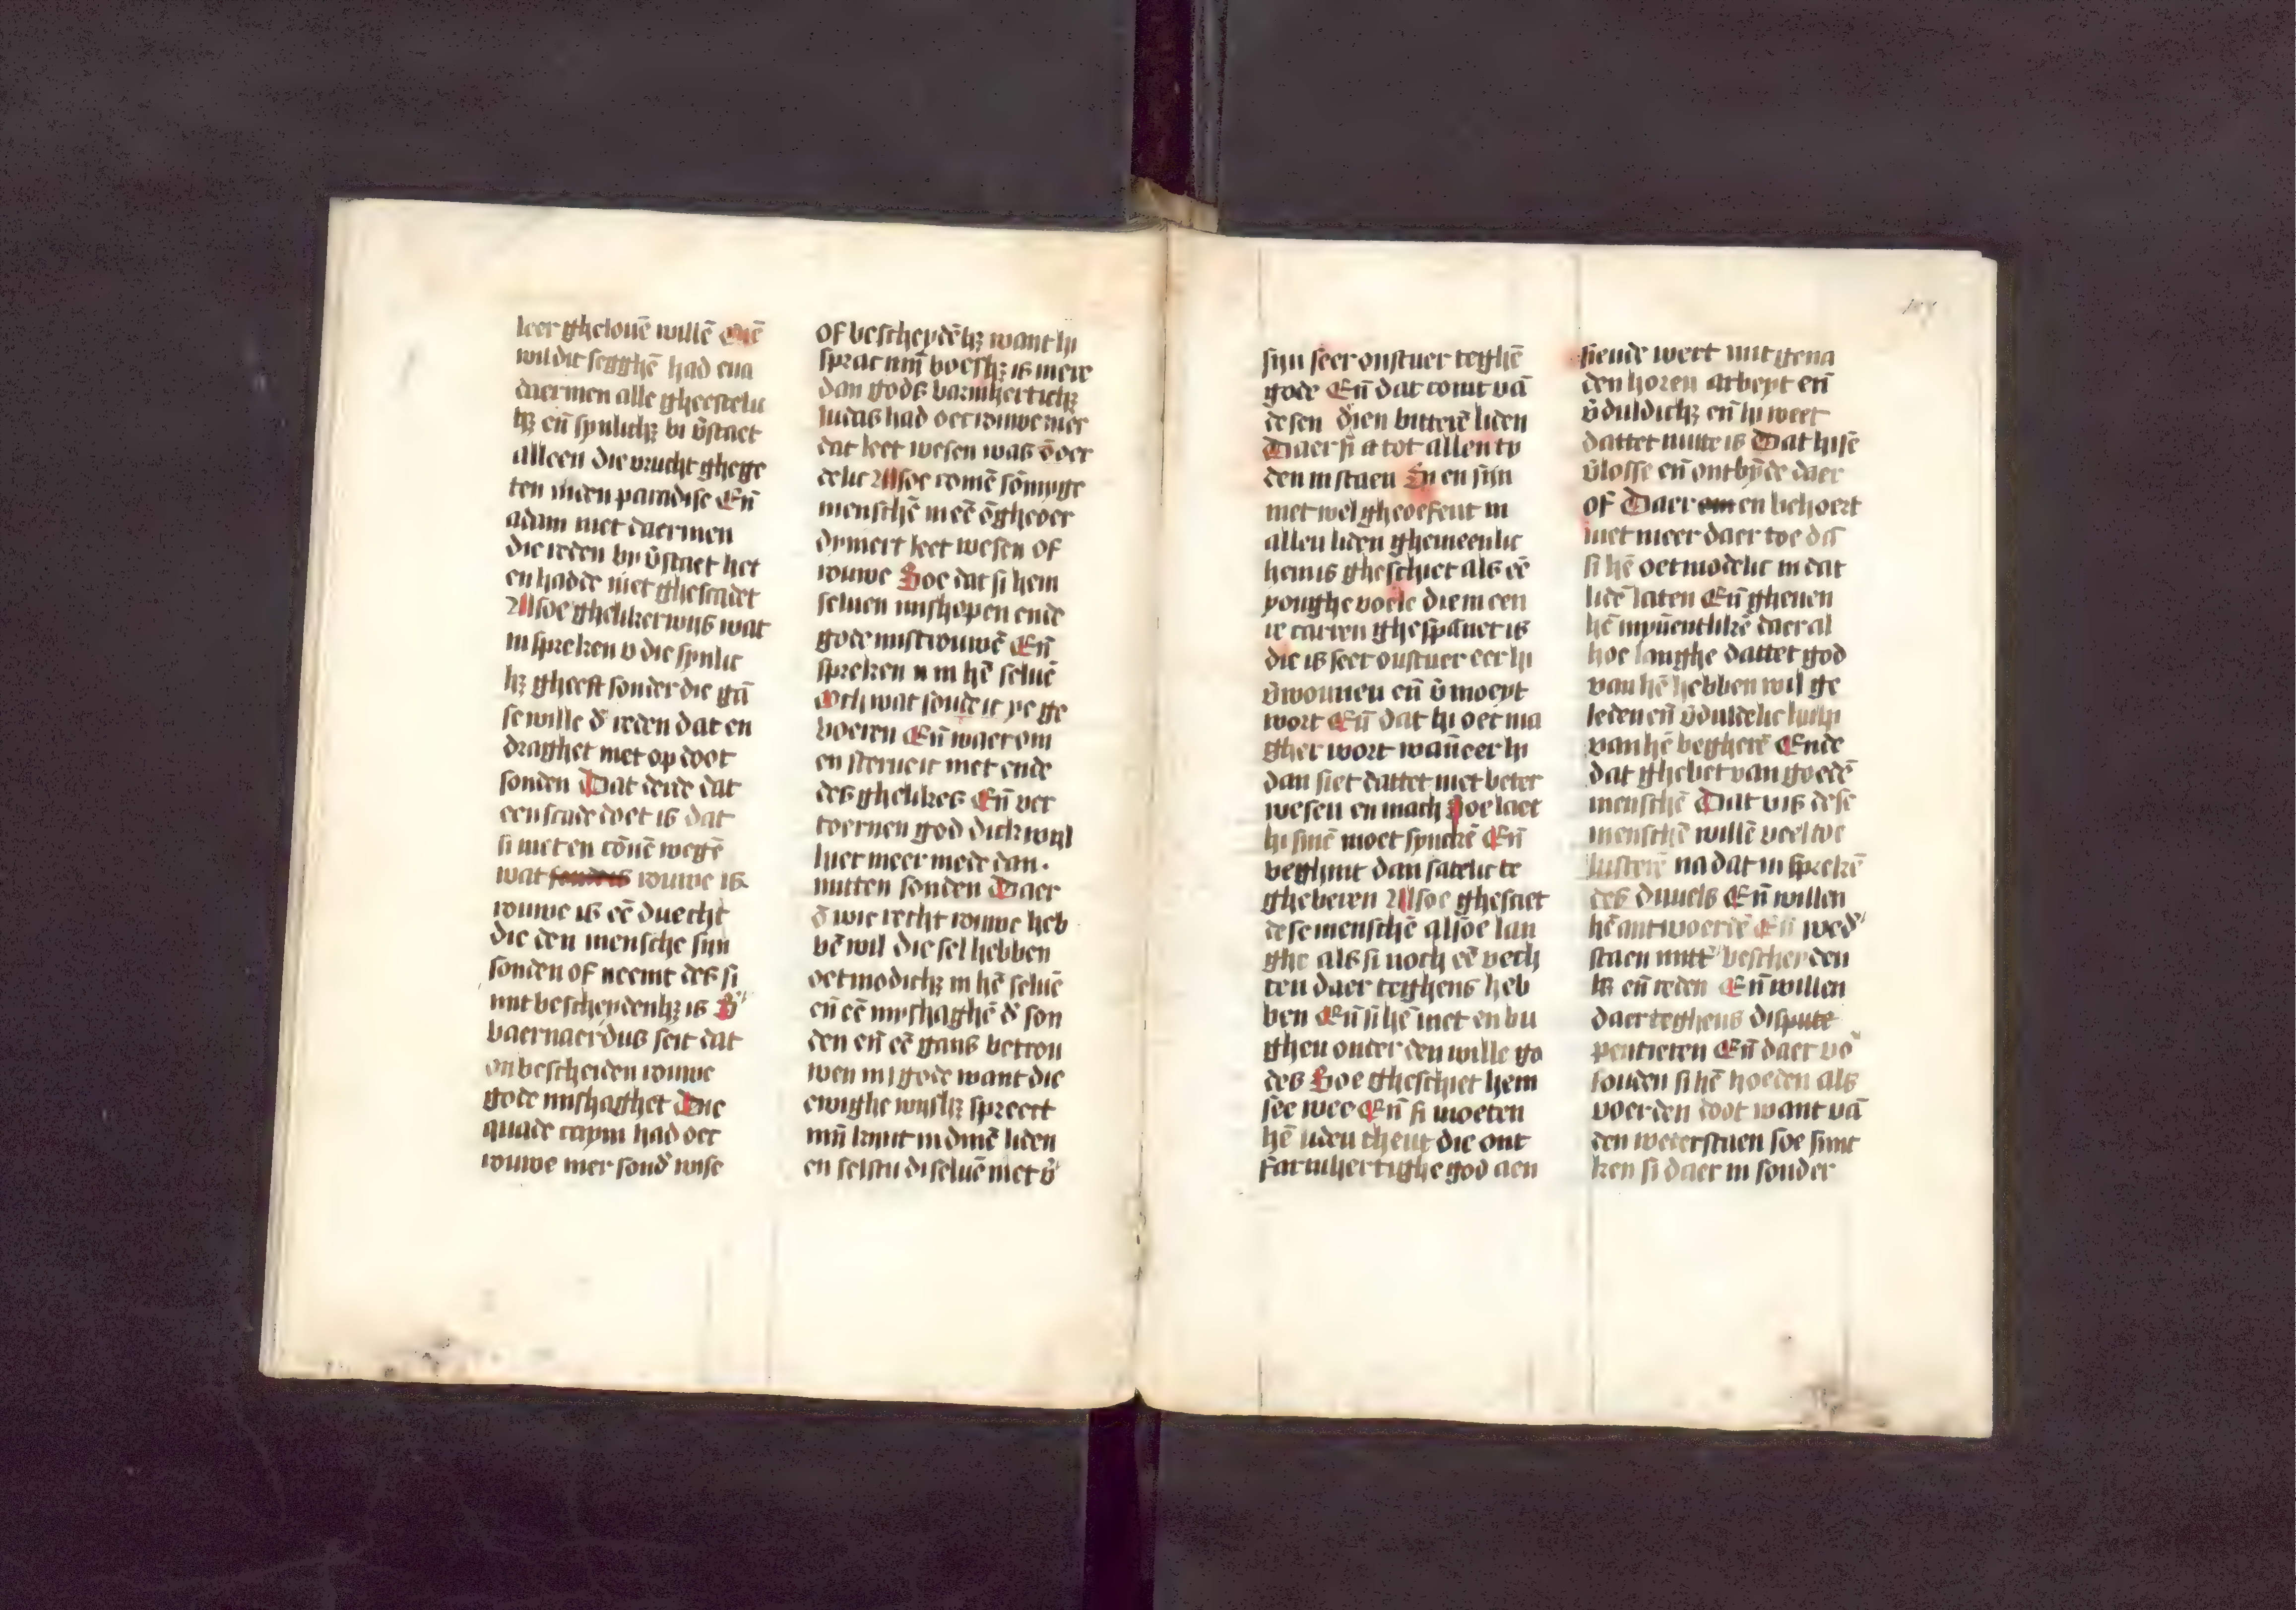 leer ghelouē willē Ende
wil dit segghē had eua
daermen alle gheestelic
hꝫ eñ synlichꝫ bi v̄staet
alleen die vrucht ghege
ten inden paradise Eñ
adam niet daermen
die reden by v̄staet het
en hadde niet ghescadet
Alsoe ghelikerwijs wat
in spreken v die synlic
hꝫ gheeft sonder die gā
se wille d̄ reden dat en
draghet niet op doot
sonden Dat derde dat
een scade doet is dat
si niet en cōnē wegē
wat rouwe is
rouwe is eē duecht
die den mensche sijn
sonden of neemt des si
mit bescheydenhꝫ is S'
baernaerdus seit dat
onbescheiden rouwe
gode mishaghet Die
quade caym had oec
rouwe mer sond' wise
of bescheydēhꝫ want hi
sprac mijn boeshꝫ is mere
dan gods barmhertichꝫ
Iudas had oec rouwe mer
dat leet wesen was ōoer
delic Alsoe comē sōmyge
menschē in eē ōgheoer
dyniert leet wesen of
rouwe Soe dat si hem
seluen mishopen ende
gode mistrouwē Eñ
spreken in hē seluē
Och wat soude ic ye ge
boeren Eñ waer om
en sterue ic niet ende
des ghelikes Eñ ver
toernen god dickwijl
hier meer mede dan
mitten sonden Daer
ō wie recht rouwe heb
bē wil die sel hebben
oetmodichꝫ in hē seluē
eñ eē myshaghē d' son
den eñ eē gans betrou
wen in gode want die
ewighe wijshꝫ spreect
mijn kynt in dinē liden
en selstu di seluē niet v̄
sijn seer onstuer teghē
gode Eñ dat comt vā
desen dien bitterē liden
Daer si a tot allen ty
den in staen En en sijn
niet wel gheoefent in
allen liden ghemeenlic
hem is gheschiet als eē
yonghe voele die in een
re carren ghespānet is
die is seer onstuer eer hi
v̄wonnen eñ v̄moeyt
wort Eñ dat hi oec ma
gher wort wanneer hi
dan siet dattet niet beter
wesen en mach Soe laet
hi sinē moet syncken Eñ
beghint dan satelic te
gheberen Alsoe ghesciet
dese menschē alsoe lan
ghe als si noch eē vech
ten daer teghens heb
ben Eñ si hē niet en bu
ghen onder den wille go
des Soe gheschiet hem
see wee Eñ si moeten
hē liden theut die ont
farmhertighe god aen
siende wert mit gena
den horen arbeyt eñ
v̄duldichꝫ eñ hi weet
dattet nutte is Dat hi sē
v̄losse eñ ontbijde daer
of Daer en behoert
niet meer daer toe dā
si hē oetmodelic in dat
lidē laten Eñ gheuen
hē inwēntlikē daer al
hoe langhe dattet god
van hē hebben wil ge
leden eñ v̄duldelic hulp
van hē begherē Ende
dat ghebet van goedē
menschē Dat vijs dese
menschē willē veel toe
lusterē na dat in sprekē
des duuels Eñ willen
hē antwoerdē Eñ wed'
staen mitt' bescheyden
hꝫ eñ reden Eñ willen
daer teghens dispute
penticren Eñ daer vō
souden si hē hoeden als
voer den doot want vā
den wederstaen soe sinc
ken si daer in sonder